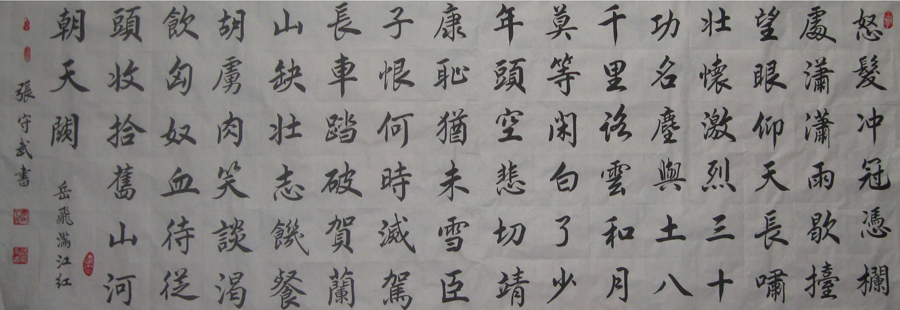 怒髮冲冠憑欄
處瀟瀟雨歇擡
望眼仰天長嘯
壯懷激烈三十
功名塵與土八
千里路雲和月
莫等闲白了少
年頭空悲切靖
康恥猶未雪臣
子恨何時滅駕
長車踏破賀蘭
山缺壯志饑餐
胡虜肉笑談渴
飲匈奴血待從
頭收拾舊山河
朝天闕
岳飛滿江红
張守武書